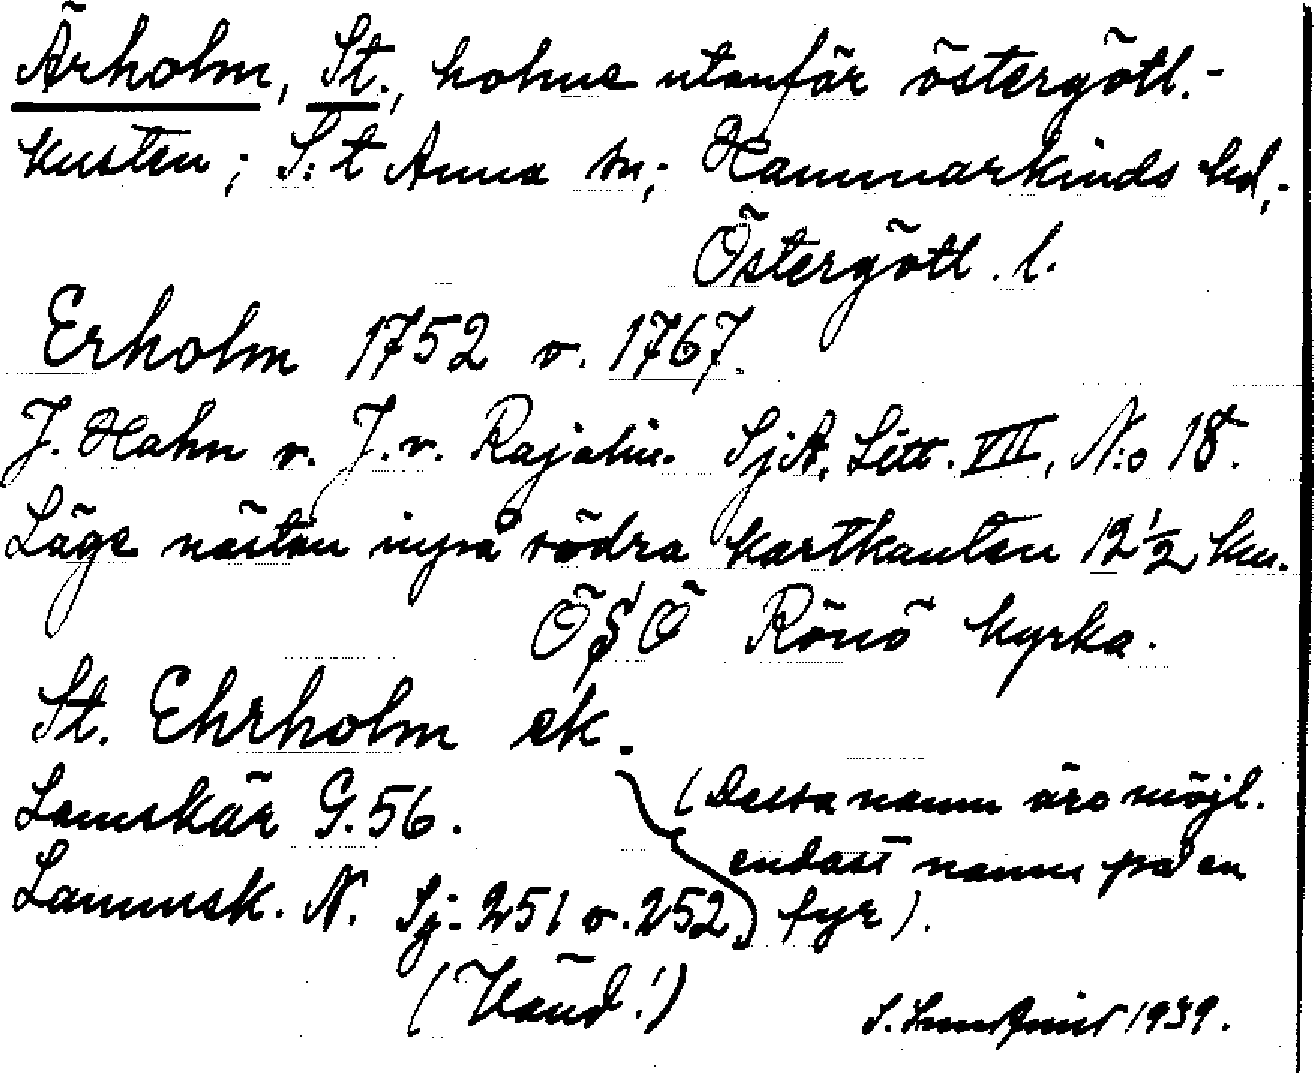 Ärholm, St., holme utanför östergötl.-
kusten; S:t Anna sn; Hammarkinds hd,
Östergötl. l.
Erholm 1752 o. 1767.
J. Hahn o. J. v. Rajalin. SjA. Litt. VII, N:o 18.
Läge nästan inpå södra kartkanten 12½ km.
ÖSÖ Rönö kyrka.
St. Ehrholm ek.
Lamskär G. 56.
Lammsk. N. Sj. 251 o. 252
(Dessa namn äro möjl.
endast namn på en
fyr).
(Vänd!)
S. 1939.